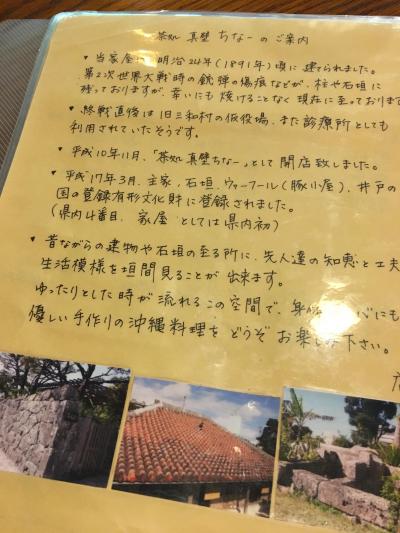 茶処 真壁ちなーのご案内
▾ 当家屋は明治24年(1891年)頃に建てられました。
第2次世界大戦時の銃弾の傷痕などが、柱や石垣に
残っておりますが、幸いにも焼けることなく現在に至っております
▾ 終戦直後は旧三和村の仮役場、また診療所としても
利用されていたそうです。
▾ 平成10年11月、「茶処 真壁ちなー」として開店致しました。
▾ 平成17年3月、主家、石垣、ウヮーフール(豚小屋)、井戸の
国の登録有形文化財に登録されました。
(県内4番目、家屋としては県内初)
▾ 昔ながらの建物や石垣の至る所に、先人達の知恵と工夫
生活模様を垣間見ることが出来ます。
ゆったりとした時が流れるこの空間で、にも
優しい手作りの沖縄料理をどうぞお楽しみ下さい。